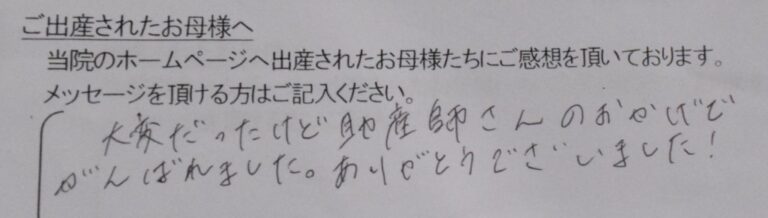 ご出産されたお母様へ
当院のホームページへ出産されたお母様たちにご感想を頂いております。
メッセージを頂ける方はご記入ください。
大変だったけど助産師さんのおかげで
がんばれました。ありがとうございました!